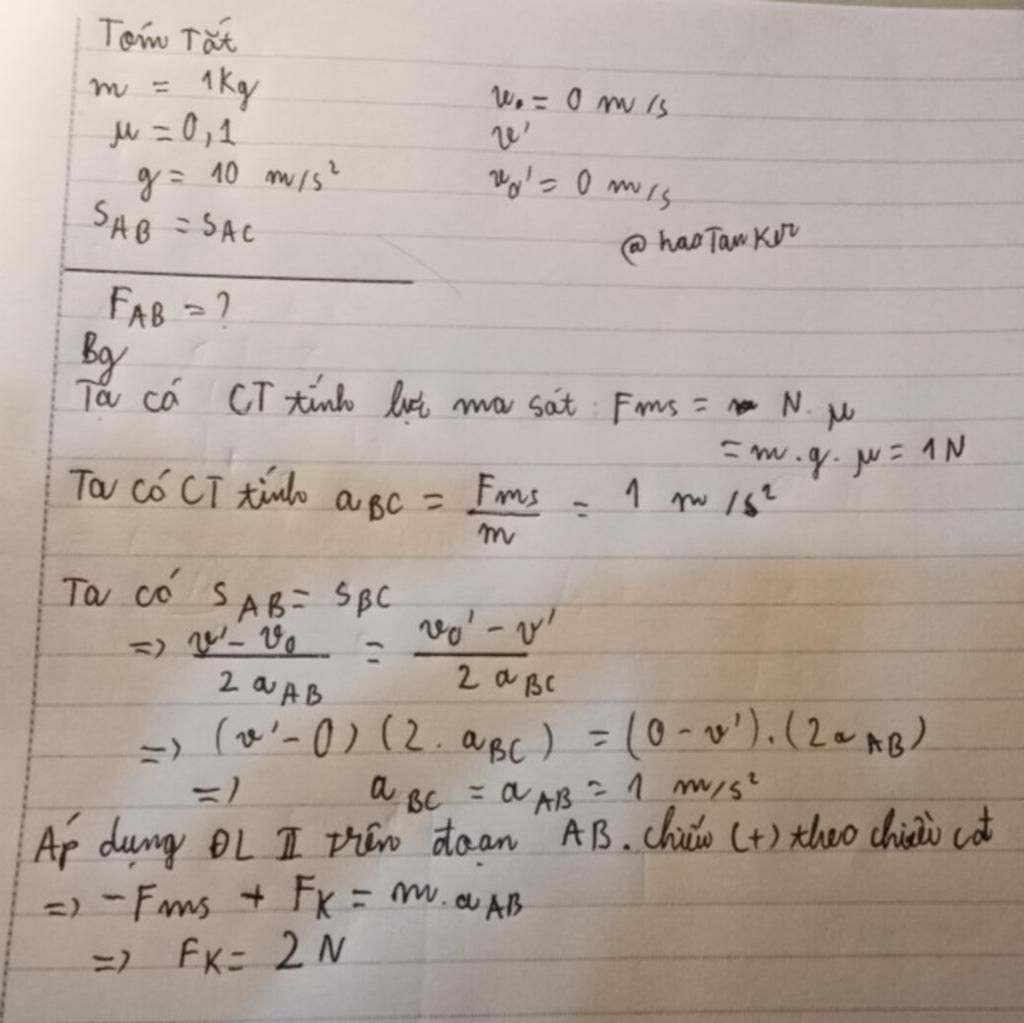 Tóm Tắt
m = 1Kg
μ = 0,1
g = 10 m/s²
S_AB = S_AC
v₀ = 0 m/s
v'
v₀' = 0 m/s
@haoTanKer
F_AB = ?
Bg
Ta cá CT tính lực ma sát: Fms = N. μ
= m.g. μ = 1N
Ta có CT tính a_BC = Fms / m = 1 m/s²
Ta có S_AB = S_BC
=> (v' - v₀) / (2 a_AB) = (v₀' - v') / (2 a_BC)
=> (v' - 0) (2. a_BC) = (0 - v'). (2a_AB)
=> a_BC = a_AB = 1 m/s²
Áp dụng ĐL II trên đoạn AB. chiều (+) theo chiều cđ
=> -Fms + F_K = m. a_AB
=> F_K = 2 N